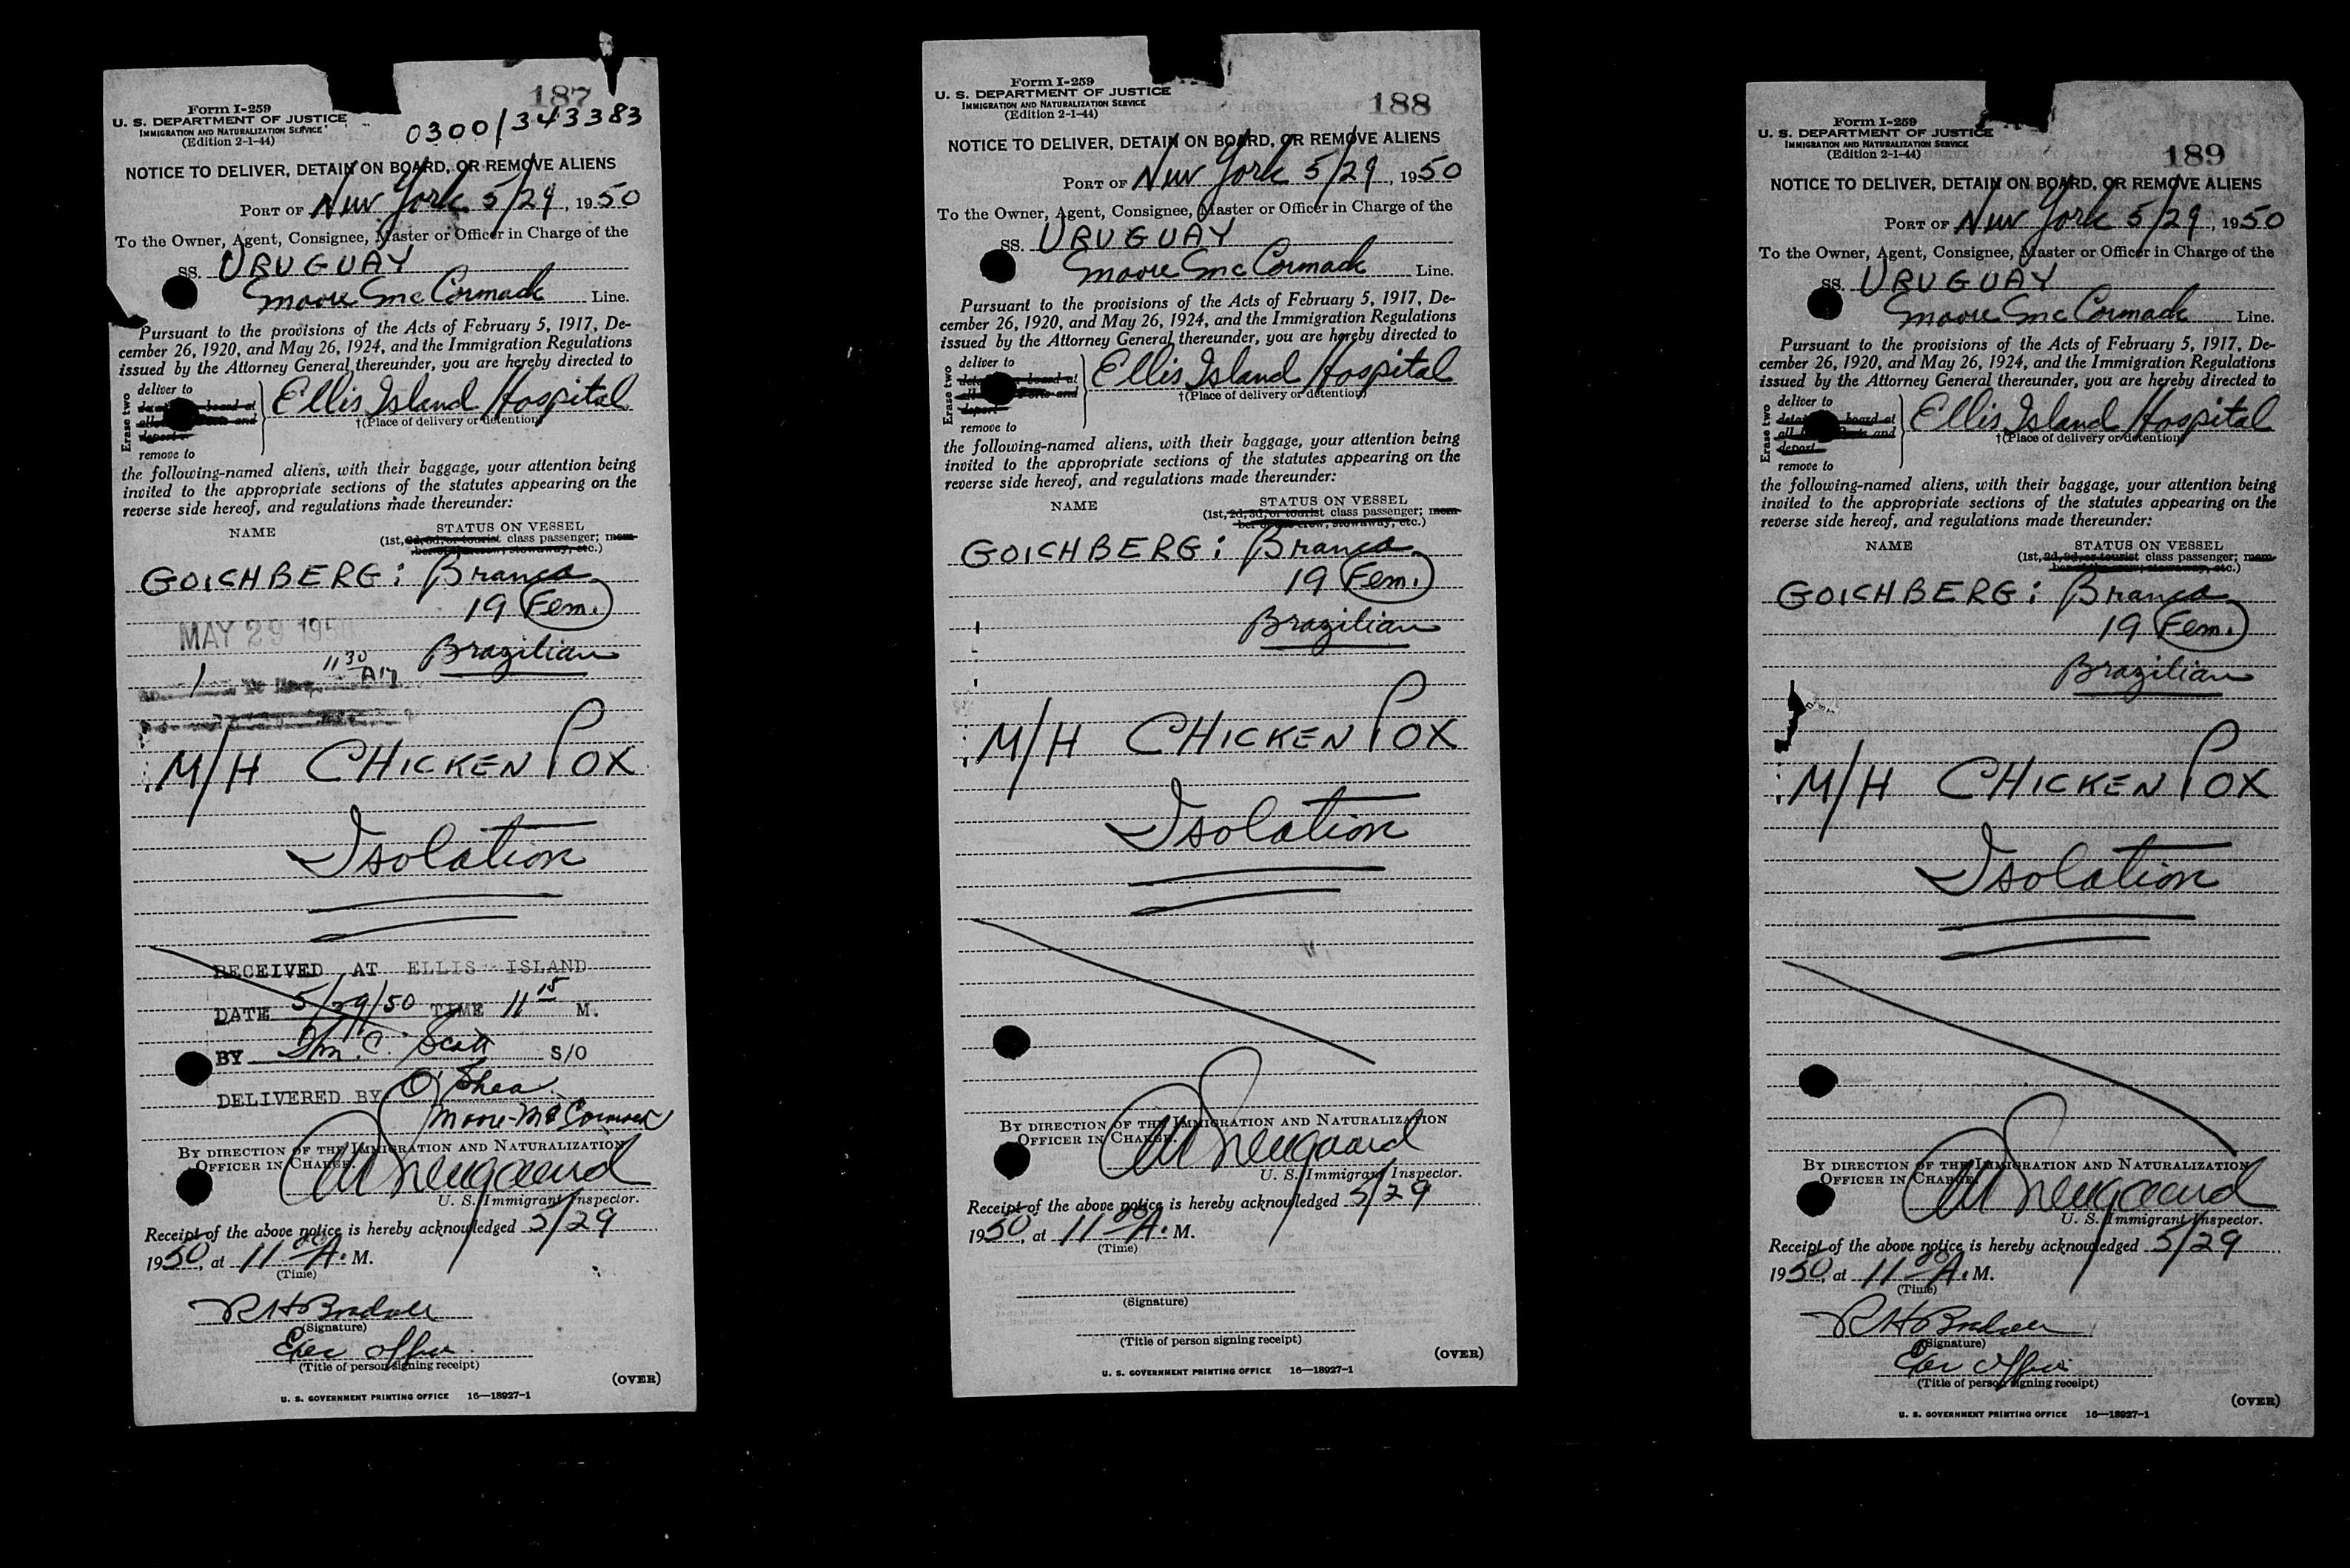 187
Form I-259
U. S. DEPARTMENT OF JUSTICE
IMMIGRATION AND NATURALIZATION SERVICE
(Edition 2-1-44)
0300/343383
NOTICE TO DELIVER, DETAIN ON BOARD, OR REMOVE ALIENS
PORT OF New York 5/29, 1950
To the Owner, Agent, Consignee, Master or Officer in Charge of the
SS. URUGUAY
Moore McCormack Line.
Pursuant to the provisions of the Acts of February 5, 1917, De-
cember 26, 1920, and May 26, 1924, and the Immigration Regulations
issued by the Attorney General thereunder, you are hereby directed to
Erase two
deliver to
board at
and
deport
remove to
Ellis Island Hospital
†(Place of delivery or detention)
the following-named aliens, with their baggage, your attention being
invited to the appropriate sections of the statutes appearing on the
reverse side hereof, and regulations made thereunder:
NAME STATUS ON VESSEL
(1st, 2d, 3d, or tourist class passenger; mem-
ber of the crew; stowaway, etc.)
GOICHBERG: Branca
19 Fem.
MAY 29 1950
Brazilian
1 11 30 AM
M/H CHICKEN POX
Isolation
RECEIVED AT ELLIS ISLAND
DATE 5/29/50 TIME 11 15 M.
BY Wm. C. Scott S/O
DELIVERED BY O'Shea
Moore-McCormack
BY DIRECTION OF THE IMMIGRATION AND NATURALIZATION
OFFICER IN CHARGE.
U. S. Immigrant Inspector.
Receipt of the above notice is hereby acknowledged 5/29
1950, at 11 00 A. M.
(Time)
(Signature)
Exec Officer
(Title of person signing receipt)
(OVER)
U. S. GOVERNMENT PRINTING OFFICE 16—18927-1
Form I-259
U. S. DEPARTMENT OF JUSTICE
IMMIGRATION AND NATURALIZATION SERVICE
(Edition 2-1-44)
188
NOTICE TO DELIVER, DETAIN ON BOARD, OR REMOVE ALIENS
PORT OF New York 5/29, 1950
To the Owner, Agent, Consignee, Master or Officer in Charge of the
SS. URUGUAY
Moore McCormack Line.
Pursuant to the provisions of the Acts of February 5, 1917, De-
cember 26, 1920, and May 26, 1924, and the Immigration Regulations
issued by the Attorney General thereunder, you are hereby directed to
Erase two
deliver to
board at
and
deport
remove to
Ellis Island Hospital
†(Place of delivery or detention)
the following-named aliens, with their baggage, your attention being
invited to the appropriate sections of the statutes appearing on the
reverse side hereof, and regulations made thereunder:
NAME STATUS ON VESSEL
(1st, 2d, 3d, or tourist class passenger; mem-
ber of the crew; stowaway, etc.)
GOICHBERG: Branca
19 Fem.
Brazilian
M/H CHICKEN POX
Isolation
BY DIRECTION OF THE IMMIGRATION AND NATURALIZATION
OFFICER IN CHARGE.
U. S. Immigrant Inspector.
Receipt of the above notice is hereby acknowledged 5/29
1950, at 11 00 A. M.
(Time)
(Signature)
(Title of person signing receipt)
(OVER)
U. S. GOVERNMENT PRINTING OFFICE 16—18927-1
Form I-259
U. S. DEPARTMENT OF JUSTICE
IMMIGRATION AND NATURALIZATION SERVICE
(Edition 2-1-44)
189
NOTICE TO DELIVER, DETAIN ON BOARD, OR REMOVE ALIENS
PORT OF New York 5/29, 1950
To the Owner, Agent, Consignee, Master or Officer in Charge of the
SS. URUGUAY
Moore McCormack Line.
Pursuant to the provisions of the Acts of February 5, 1917, De-
cember 26, 1920, and May 26, 1924, and the Immigration Regulations
issued by the Attorney General thereunder, you are hereby directed to
Erase two
deliver to
board at
all and
deport
remove to
Ellis Island Hospital
†(Place of delivery or detention)
the following-named aliens, with their baggage, your attention being
invited to the appropriate sections of the statutes appearing on the
reverse side hereof, and regulations made thereunder:
NAME STATUS ON VESSEL
(1st, 2d, 3d, or tourist class passenger; mem-
ber of the crew; stowaway, etc.)
GOICHBERG: Branca
19 Fem.
Brazilian
M/H CHICKEN POX
Isolation
BY DIRECTION OF THE IMMIGRATION AND NATURALIZATION
OFFICER IN CHARGE.
U. S. Immigrant Inspector.
Receipt of the above notice is hereby acknowledged 5/29
1950, at 11 00 A. M.
(Time)
(Signature)
Exec Officer
(Title of person signing receipt)
(OVER)
U. S. GOVERNMENT PRINTING OFFICE 16—18927-1